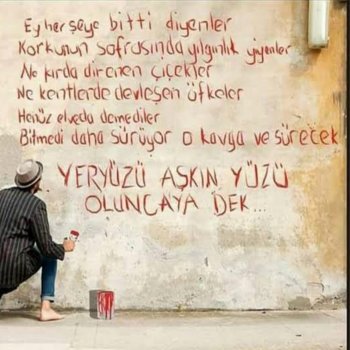 Ey her şeye bitti diyenler
Korkunun sofrasında yılgınlık yiyenler
Ne kırda direnen çiçekler
Ne kentlerde devleşen öfkeler
Henüz elveda demediler
Bitmedi daha sürüyor o kavga ve sürecek
YERYÜZÜ AŞKIN YÜZÜ
OLUNCAYA DEK...